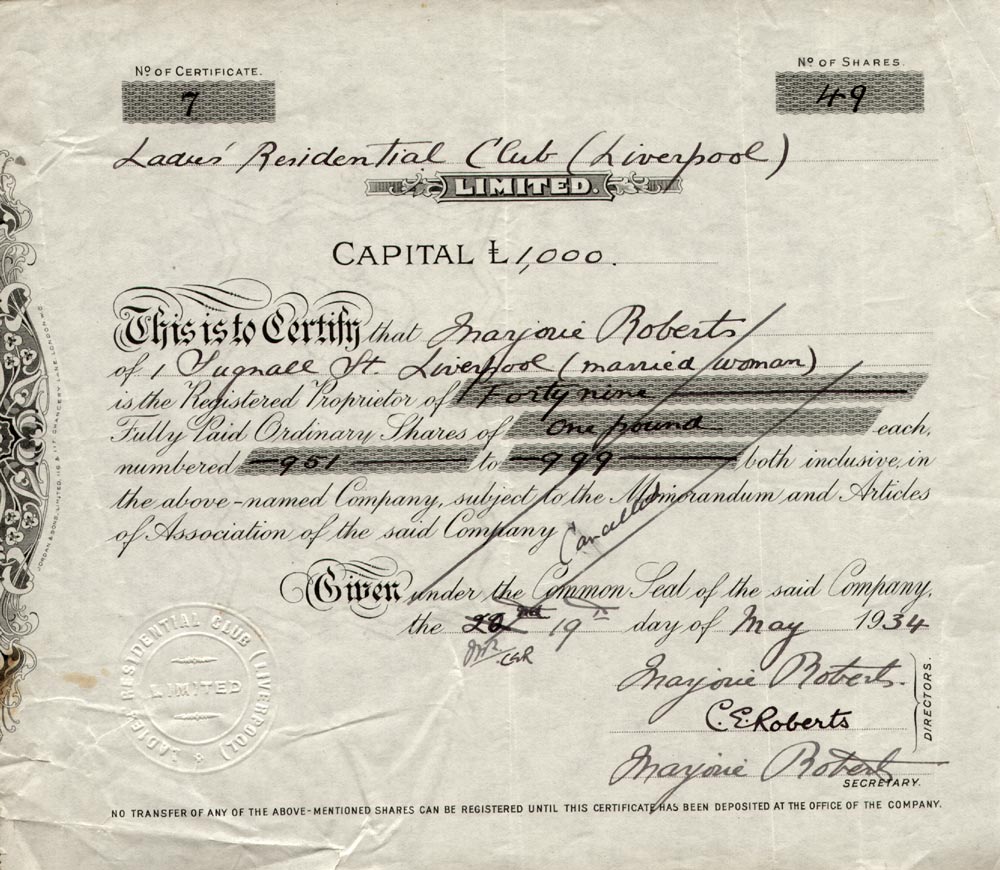 Nº OF CERTIFICATE.
7
Nº OF SHARES.
49
Ladies' Residential Club (Liverpool)
LIMITED.
CAPITAL £1,000.
This is to Certify that Marjorie Roberts
of 1 Tugnall St. Liverpool (married woman)
is the Registered Proprietor of Forty nine
Fully Paid Ordinary Shares of One pound each,
numbered 951 to 999 both inclusive, in
the above-named Company, subject to the Memorandum and Articles
of Association of the said Company
Cancelled
Given under the Common Seal of the said Company,
the 19th day of May 1934
CER
Marjorie Roberts.
C.E.Roberts
DIRECTORS.
Marjorie Roberts
SECRETARY.
LADIES' RESIDENTIAL CLUB (LIVERPOOL)
LIMITED
NO TRANSFER OF ANY OF THE ABOVE-MENTIONED SHARES CAN BE REGISTERED UNTIL THIS CERTIFICATE HAS BEEN DEPOSITED AT THE OFFICE OF THE COMPANY.
JORDAN & SONS, LIMITED, 116 & 117 CHANCERY LANE, LONDON, W.C.